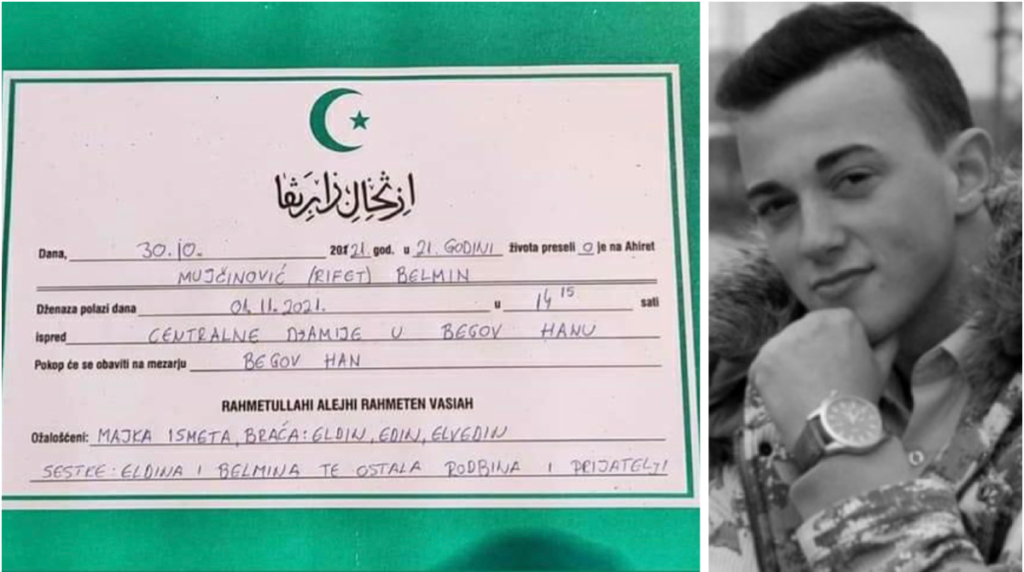 Dana, 30.10. 2021 21 god. u 21. GODINI života preseli o je na Ahiret
MUJČINOVIĆ (RIFET) BELMIN
Dženaza polazi dana 01.11.2021. u 14 15 sati
ispred CENTRALNE DŽAMIJE U BEGOV HANU
Pokop će se obaviti na mezarju BEGOV HAN
RAHMETULLAHI ALEJHI RAHMETEN VASIAH
Ožalošćeni: MAJKA ISMETA, BRAĆA: ELDIN, EDIN, ELVEDIN
SESTRE: ELDINA I BELMINA TE OSTALA RODBINA I PRIJATELJI